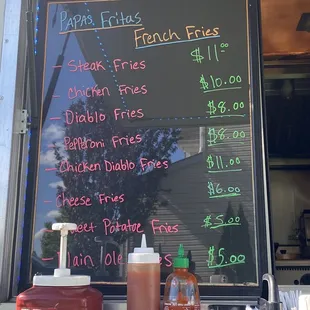 PAPAS Fritas
French Fries
- Steak Fries $11.00
- Chicken Fries $10.00
- Diablo Fries $8.00
- Pepperoni Fries $8.00
- Chicken Diablo Fries $11.00
- Cheese Fries $6.00
- Sweet Potatoe Fries $5.00
- Plain Ole $5.00